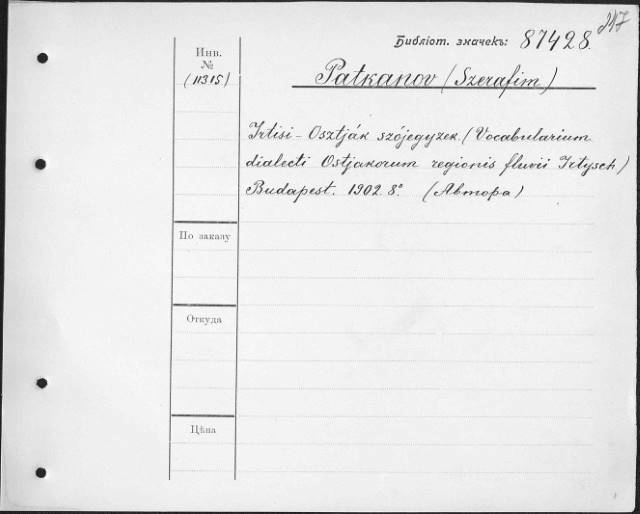 247
Библіот. значекъ: 87428.
Инв.
№
(11315)
Patkanov (Szerafim)
Irtisi-Osztják szójegyzek. (Vocabularium
dialecti Ostjakorum regionis fluvii Irtysch)
Budapest. 1902. 8°. (Автора)
По заказу
Откуда
Цѣна